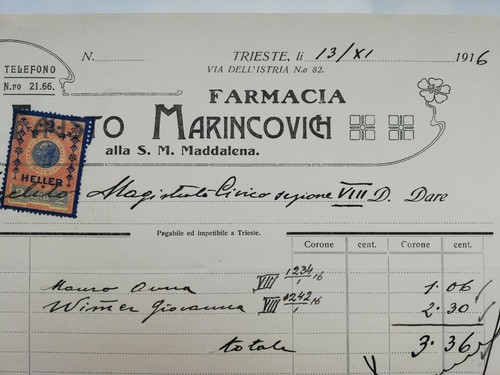 TELEFONO
N.ro 21.66.
N. TRIESTE, li 13/XI 1916
VIA DELL'ISTRIA N.o 82.
FARMACIA
TO MARINCOVICH
alla S. M. Maddalena.
HELLER
Magistrato Civico sezione VIII D. Dare
Pagabile ed impetibile a Trieste.
Corone cent. Corone cent.
Mauro Anna VIII 1234/1 16 1.06
Wimer Giovanna VIII 0242/1 16 2.30
totale 3.36